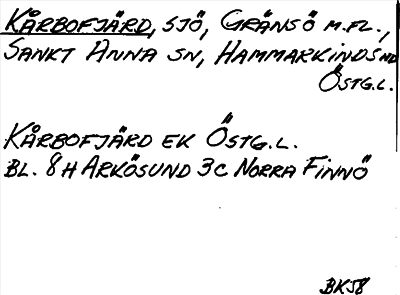 KÅRBOFJÄRD, SJÖ, GRÄNSÖ M.FL.,
SANKT ANNA SN, HAMMARKINDS HD
ÖSTG.L.
KÅRBOFJÄRD EK ÖSTG.L.
BL. 8 H ARKÖSUND 3C NORRA FINNÖ
BKJ8